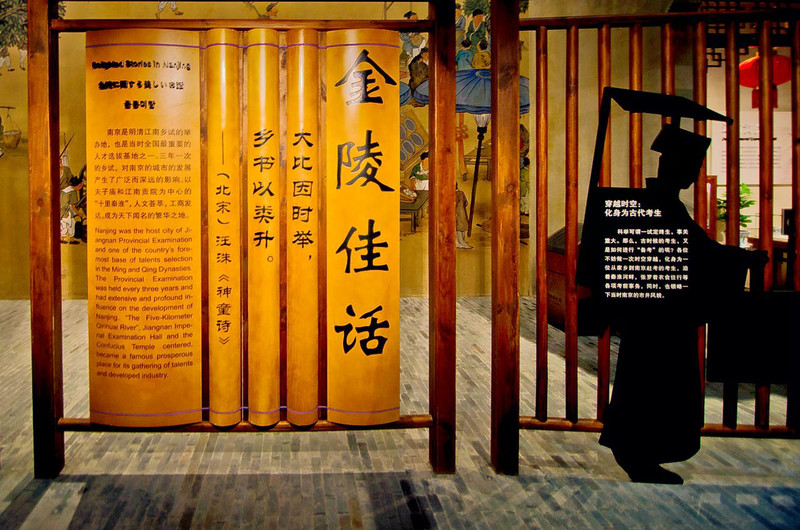 金陵佳话
大比因时举，
乡书以类升。
——（北宋）汪洙《神童诗》
Stories in Nanjing
南京是明清江南乡试的举
办地，也是当时全国最重要的
人才选拔基地之一。三年一次
的乡试，对南京的城市的发展
产生了广泛而深远的影响。以
夫子庙和江南贡院为中心的
“十里秦淮”，人文荟萃，工商发
达，成为天下闻名的繁华之地。
Nanjing was the host city of Ji-
angnan Provincial Examination
and one of the country's fore-
most base of talents selection
in the Ming and Qing Dynasties.
The Provincial Examination
was held every three years and
had extensive and profound in-
fluence on the development of
Nanjing. "The Five-Kilometer
Qinhuai River", Jiangnan Impe-
rial Examination Hall and the
Confucius Temple centered,
became a famous prosperous
place for its gathering of talents
and developed industry.
穿越时空：
化身为古代考生
科举可谓一试定终生，事关
重大。那么，古时候的考生，又
是如何进行“备考”的呢？各位
不妨做一次时空穿越，化身为一
位从家乡到南京赴考的考生，沿
着秦淮河畔，张罗着衣食住行等
各项考前事务，同时，也领略一
下当时南京的市井风情。